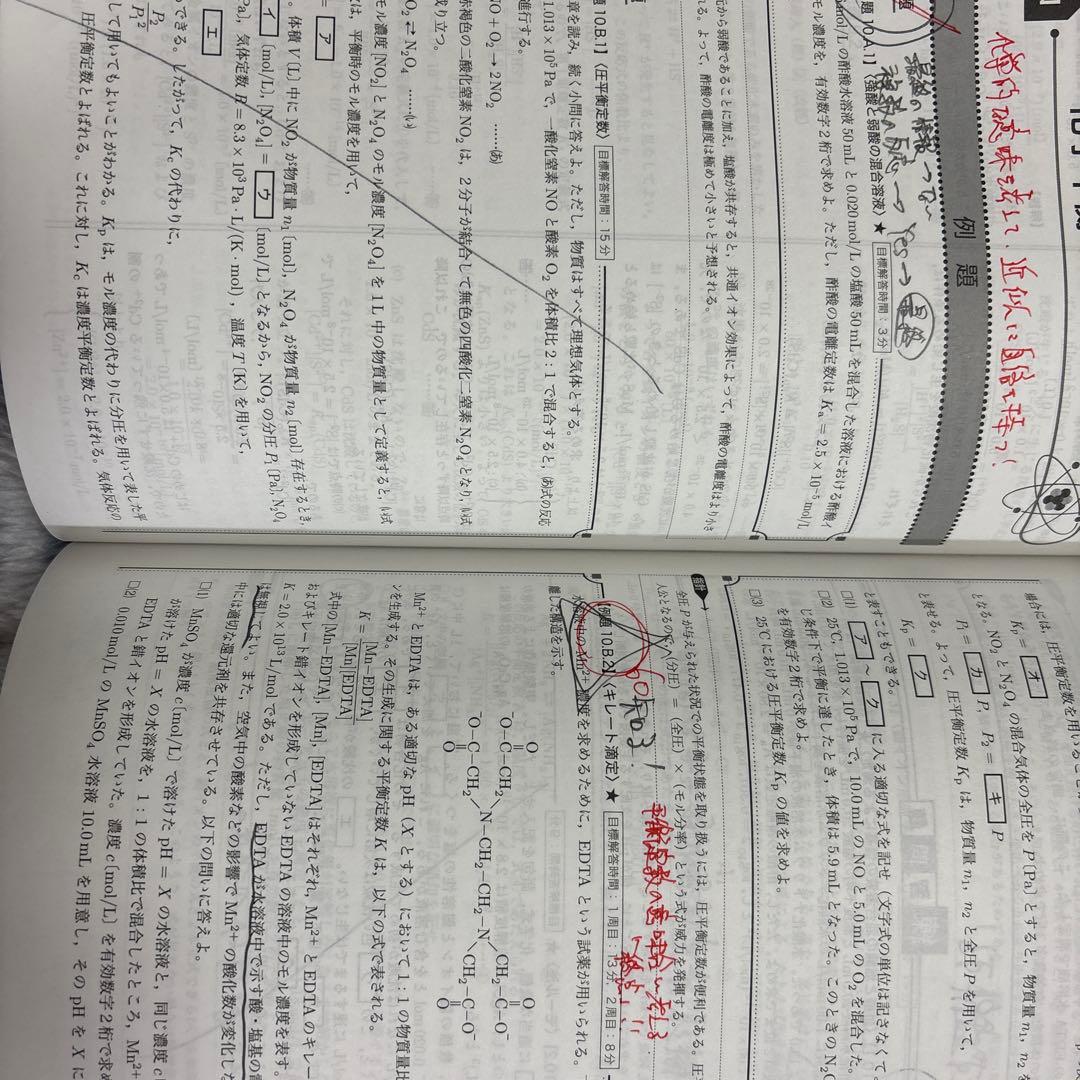 化学的意味を考えて、近似に自信を持つ！
例 題
最強の酸
複数の反応 → Yes →
題 10.A.1】〈強酸と弱酸の混合溶液〉★ 目標解答時間：3分
mol/Lの酢酸水溶液 50 mL と 0.020 mol/L の塩酸 50 mL を混合した溶液における酢酸イ
モル濃度を，有効数字2桁で求めよ。ただし，酢酸の電離定数は Ka = 2.5 × 10⁻⁵ mol/L
元から弱酸であることに加え，塩酸が共存すると，共通イオン効果によって，酢酸の電離度はより小さ
る。よって，酢酸の電離度は極めて小さいと予想される。
題 10.B.1】〈圧平衡定数〉 目標解答時間：15分
章を読み，続く小問に答えよ。ただし，物質はすべて理想気体とする。
1.013 × 10⁵ Pa で，一酸化窒素 NO と酸素 O₂ を体積比 2：1 で混合すると，(あ)式の反応
進行する。
NO + O₂ → 2NO₂ ……(あ)
赤褐色の二酸化窒素 NO₂ は，2分子が結合して無色の四酸化二窒素 N₂O₄ となり，(い)式
成り立つ。
O₂ ⇄ N₂O₄ ……(い)
モル濃度[NO₂]と N₂O₄ のモル濃度[N₂O₄]を 1 L 中の物質量として定義すると，(い)式
は，平衡時のモル濃度を用いて，
ア
。体積 V〔L〕中に NO₂ が物質量 n₁〔mol〕，N₂O₄ が物質量 n₂〔mol〕存在するとき，
イ 〔mol/L〕，[N₂O₄] = ウ 〔mol/L〕となるから，NO₂ の分圧 P₁〔Pa〕，N₂O₄
Pa〕，気体定数 R = 8.3 × 10³ Pa・L/(K・mol)，温度 T〔K〕を用いて，
エ
もできる。したがって，Kc の代わりに，
P₂
P₁²
して用いてもよいことがわかる。Kp は，モル濃度の代わりに分圧を用いて表した平
圧平衡定数とよばれる。これに対し，Kc は濃度平衡定数とよばれる。気体反応の
場合には，圧平衡定数を用いると
Kp = オ
となる。NO₂ と N₂O₄ の混合気体の全圧を P〔Pa〕とすると，物質量 n₁，n₂ を
P₁ = カ P，P₂ = キ P
と表せる。よって，圧平衡定数 Kp は，物質量 n₁，n₂ と全圧 P を用いて，
Kp = ク
と表すこともできる。
□(1) ア ～ ク に入る適切な式を記せ（文字式の単位は記さなくて
□(2) 25℃，1.013 × 10⁵ Pa で，10.0 mL の NO と 5.0 mL の O₂ を混合した。
じ条件下で平衡に達したとき，体積は 5.9 mL となった。このときの N₂O
を有効数字2桁で求めよ。
□(3) 25℃における圧平衡定数 Kp の値を求めよ。
指針 全圧 P が与えられた状況での平衡状態を取り扱うには，圧平衡定数が便利である。圧平
人公となるので，（分圧）＝（全圧）×（モル分率）という式が威力を発揮する。
平衡定数の意味を考える
例題 10.B.2】〈キレート滴定〉★ 目標解答時間：1周目：13分，2周目：8分
水溶液中の Mn²⁺ 濃度を求めるために，EDTA という試薬が用いられる。
離した構造を示す。
O O
⁻O－C－CH₂ CH₂－C－O⁻
N－CH₂－CH₂－N
⁻O－C－CH₂ CH₂－C－O⁻
O O
Mn²⁺ と EDTA は，ある適切な pH（X とする）において 1：1 の物質量比
ンを生成する。その生成に関する平衡定数 K は，以下の式で表される。
K = [Mn－EDTA]
[Mn][EDTA]
式中の [Mn－EDTA]，[Mn]，[EDTA] はそれぞれ，Mn²⁺ と EDTA のキレー
およびキレート錯イオンを形成していない EDTA の溶液中のモル濃度を表す。
K = 2.0 × 10¹³ L/mol である。ただし，EDTA が水溶液中で示す酸・塩基の
は無視してよい。また，空気中の酸素などの影響で Mn²⁺ の酸化数が変化し
中には適切な還元剤を共存させている。以下の問いに答えよ。
□(1) MnSO₄ が濃度 c〔mol/L〕で溶けた pH = X の水溶液と，同じ濃度 c
が溶けた pH = X の水溶液を，1：1 の体積比で混合したところ，Mn²⁺
EDTA と錯イオンを形成していた。濃度 c〔mol/L〕を有効数字2桁で求め
□(2) 0.010 mol/L の MnSO₄ 水溶液 10.0 mL を用意し，その pH を X に